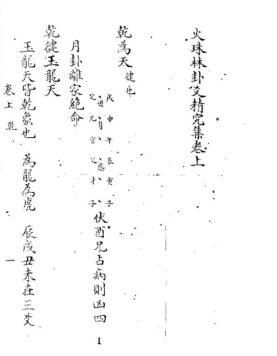 火珠林卦爻精究集卷上
乾為天 健也
戌申午辰寅子
父兄官父才子
伏酉兄占病則凶四
月卦離家絶命
乾健玉龍天
玉龍天皆乾象也 為龍為虎 辰戌丑未在三爻
卷上 乾 一
1